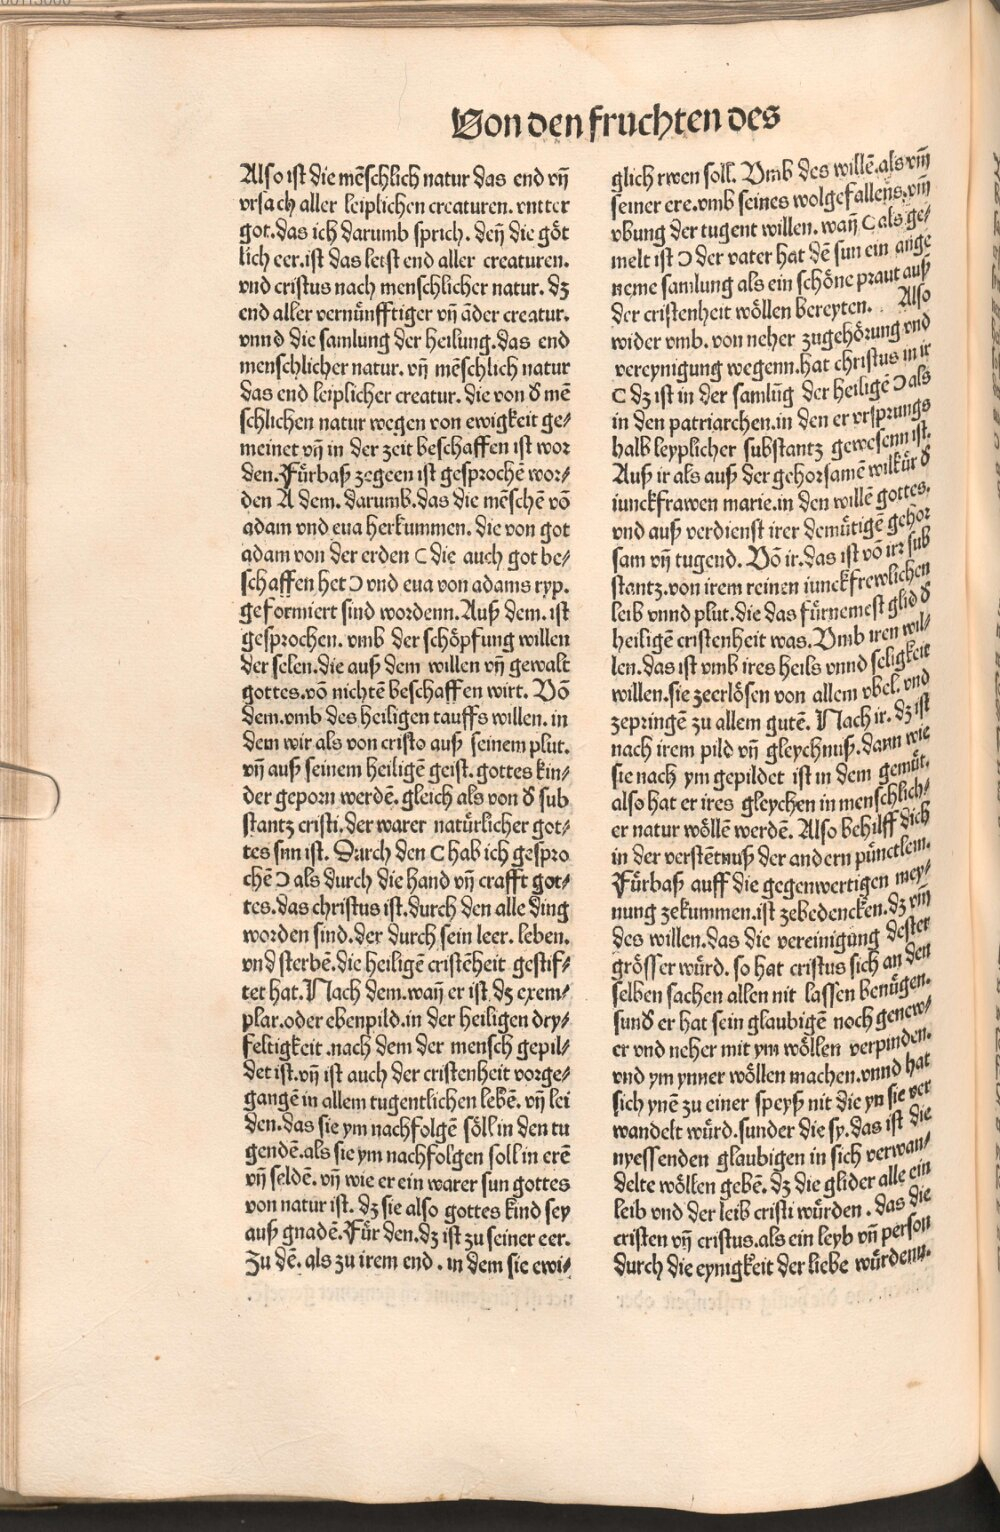 Von den fruchten des
Also ist die mēschlich natur das end vñ
vrsach aller leiplichen creaturen. vntter
got. das ich darumb sprich. deñ die göt
lich eer. ist das letst end aller creaturen.
vnd cristus nach menschlicher natur. dz
end aller vernünfftiger vñ āder creatur.
vnnd die samlung der heilung. das end
menschlicher natur. vñ mēschlich natur
das end leiplicher creatur. die von d̛ mē
schlichen natur wegen von ewigkeit ge⸗
meinet vñ in der zeit beschaffen ist wor
den. Fürbaß zegeen ist gesprochē wor⸗
den A dem. darumb. das die mēschē vō
adam vnd eua herkummen. die von got
adam von der erden ⊂ die auch got be⸗
schaffen het ⊃ vnd eua von adams ryp.
geformiert sind wordenn. Auß dem. ist
gesprochen. vmb der schöpfung willen
der selen. die auß dem willen vñ gewalt
gottes. vō nichtē beschaffen wirt. Vō
dem. vmb des heiligen tauffs willen. in
dem wir als von cristo auß seinem plut.
vñ auß seinem heiligē geist. gottes kin⸗
der geporn werdē. gleich als von d̛ sub
stantz cristi. der warer natürlicher got⸗
tes sun ist. Durch den ⊂ hab ich gespro
chē ⊃ als durch die hand vñ crafft got⸗
tes. das christus ist. durch den alle ding
worden sind. der durch sein leer. leben.
vnd sterbē. die heiligē cristēheit gestif⸗
tet hat. Nach dem. wañ er ist dz exem⸗
plar. oder ebenpild. in der heiligen dry⸗
feltigkeit. nach dem der mensch gepil⸗
det ist. vñ ist auch der cristenheit vorge⸗
gangē in allem tugentlichen lebē. vñ lei
den. das sie ym nachfolgē söll in den tu
gendē. als sie ym nachfolgen soll in erē
vñ seldē. vñ wie er ein warer sun gottes
von natur ist. dz sie also gottes kind sey
auß gnadē. Für den. dz ist zu seiner eer.
Zu dē. als zu irem end. in dem sie ewi⸗
glich rwen soll. Vmb des willē. als vm̄
seiner ere. vmb seines wolgefallens. vm̄
vbung der tugent willen. wañ ⊂ als ge⸗
melt ist ⊃ der vater hat dē sun ein ange
neme samlung als ein schöne praut auß
der cristenheit wöllen bereyten. Also
wider vmb. von neher zugehörung vnd
vereynigung wegenn. hat christus in ir
⊂ dz ist in der samlūg der heiligē ⊃ als
in den patriarchen. in den er vrsprungs
halb leyplicher substantz gewesenn ist.
Auß ir als auß der gehorsamē wilkür d̛
iunckfrawen marie. in den willē gottes.
vnd auß verdienst irer demütigē gehor
sam vñ tugend. Vō ir. das ist vō irr sub
stantz. von irem reinen iunckfrewlichen
leib vnnd plut. die das fürnemest glid d̛
heiligē cristenheit was. Vmb iren wil⸗
len. das ist vmb ires heils vnnd seligkeit
willen. sie zeerlösen von allem vbel. vnd
zepringē zu allem gutē. Nach ir. dz ist
nach irem pild vñ gleychnuß. dann wie
sie nach ym gepildet ist in dem gemüt.
also hat er ires gleychen in menschlich⸗
er natur wöllē werdē. Also behilff dich
in der verstētnuß der andern pünctlem.
Fürbaß auff die gegenwertigen mey⸗
nung zekummen. ist zebedencken. dz vm̄
des willen. das die vereinigung dester
grösser würd. so hat cristus sich an den
selben sachen allen nit lassen benügen.
sund̛ er hat sein glaubigē noch genew⸗
er vnd neher mit ym wöllen verpinden.
vnd ym ynner wöllen machen. vnnd hat
sich ynē zu einer speyß nit die yn sie ver
wandelt würd. sunder die sy. das ist die
nyessenden glaubigen in sich verwan⸗
delte wöllen gebē. dz die glider alle ein
leib vnd der leib cristi würden. das die
cristen vñ cristus. als ein leyb vñ person
durch die eynigkeit der liebe würdenn.